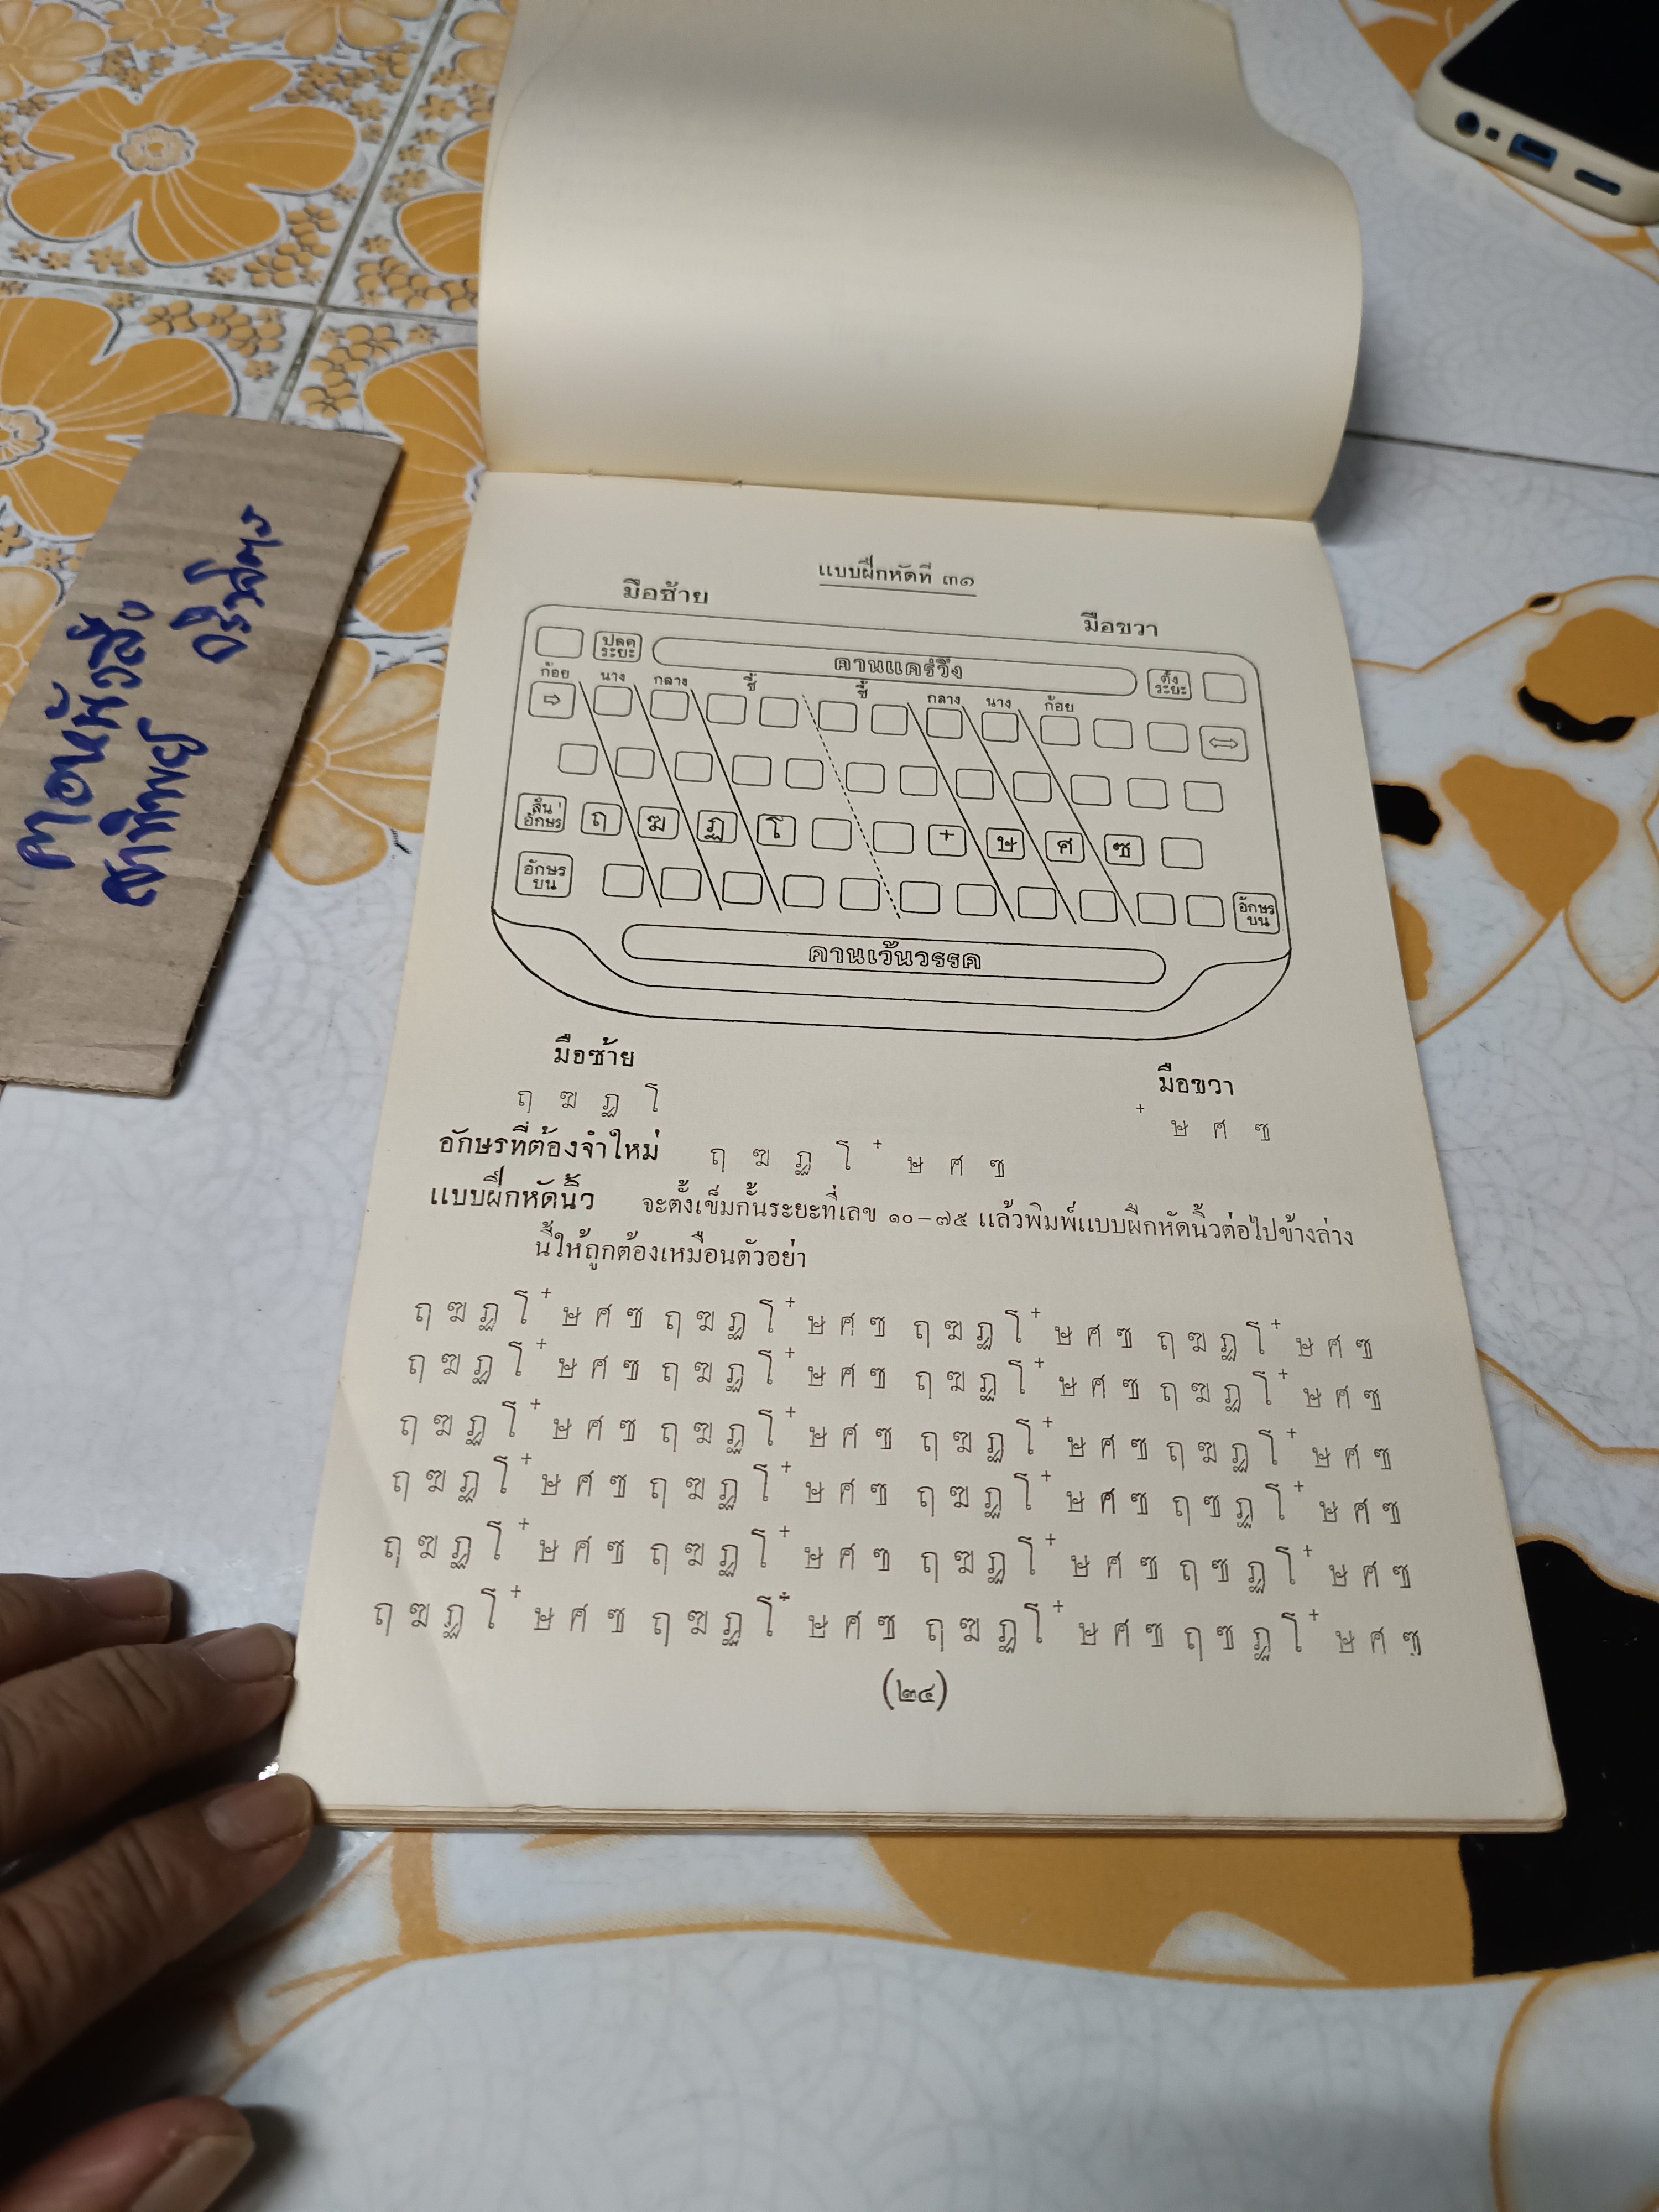 แบบฝึกหัดที่ ๓๑
มือซ้าย
มือขวา
ปลด
ระยะ
คานแคร่วิ่ง
ตั้ง
ระยะ
ก้อย นาง กลาง ชี้ ชี้ กลาง นาง ก้อย
⇨ ⇔
ลั่น
อักษร
ฤ ฆ ฏ โ + ษ ศ ซ
อักษร
บน
อักษร
บน
คานเว้นวรรค
มือซ้าย
มือขวา
ฤ ฆ ฏ โ
+ ษ ศ ซ
อักษรที่ต้องจำใหม่ ฤ ฆ ฏ โ + ษ ศ ซ
แบบฝึกหัดนิ้ว จะตั้งเข็มกั้นระยะที่เลข ๑๐–๗๕ แล้วพิมพ์แบบฝึกหัดนิ้วต่อไปข้างล่าง
นี้ให้ถูกต้องเหมือนตัวอย่า
ฤ ฆ ฏ โ + ษ ศ ซ ฤ ฆ ฏ โ + ษ ศ ซ ฤ ฆ ฏ โ + ษ ศ ซ ฤ ฆ ฏ โ + ษ ศ ซ
ฤ ฆ ฏ โ + ษ ศ ซ ฤ ฆ ฏ โ + ษ ศ ซ ฤ ฆ ฏ โ + ษ ศ ซ ฤ ฆ ฏ โ + ษ ศ ซ
ฤ ฆ ฏ โ + ษ ศ ซ ฤ ฆ ฏ โ + ษ ศ ซ ฤ ฆ ฏ โ + ษ ศ ซ ฤ ฆ ฏ โ + ษ ศ ซ
ฤ ฆ ฏ โ + ษ ศ ซ ฤ ฆ ฏ โ + ษ ศ ซ ฤ ฆ ฏ โ + ษ ศ ซ ฤ ซ ฏ โ + ษ ศ ซ
ฤ ฆ ฏ โ + ษ ศ ซ ฤ ฆ ฏ โ + ษ ศ ซ ฤ ฆ ฏ โ + ษ ศ ซ ฤ ซ ฏ โ + ษ ศ ซ
ฤ ฆ ฏ โ + ษ ศ ซ ฤ ฆ ฏ โ + ษ ศ ซ ฤ ฆ ฏ โ + ษ ศ ซ ฤ ซ ฏ โ + ษ ศ ซ
(๒๔)